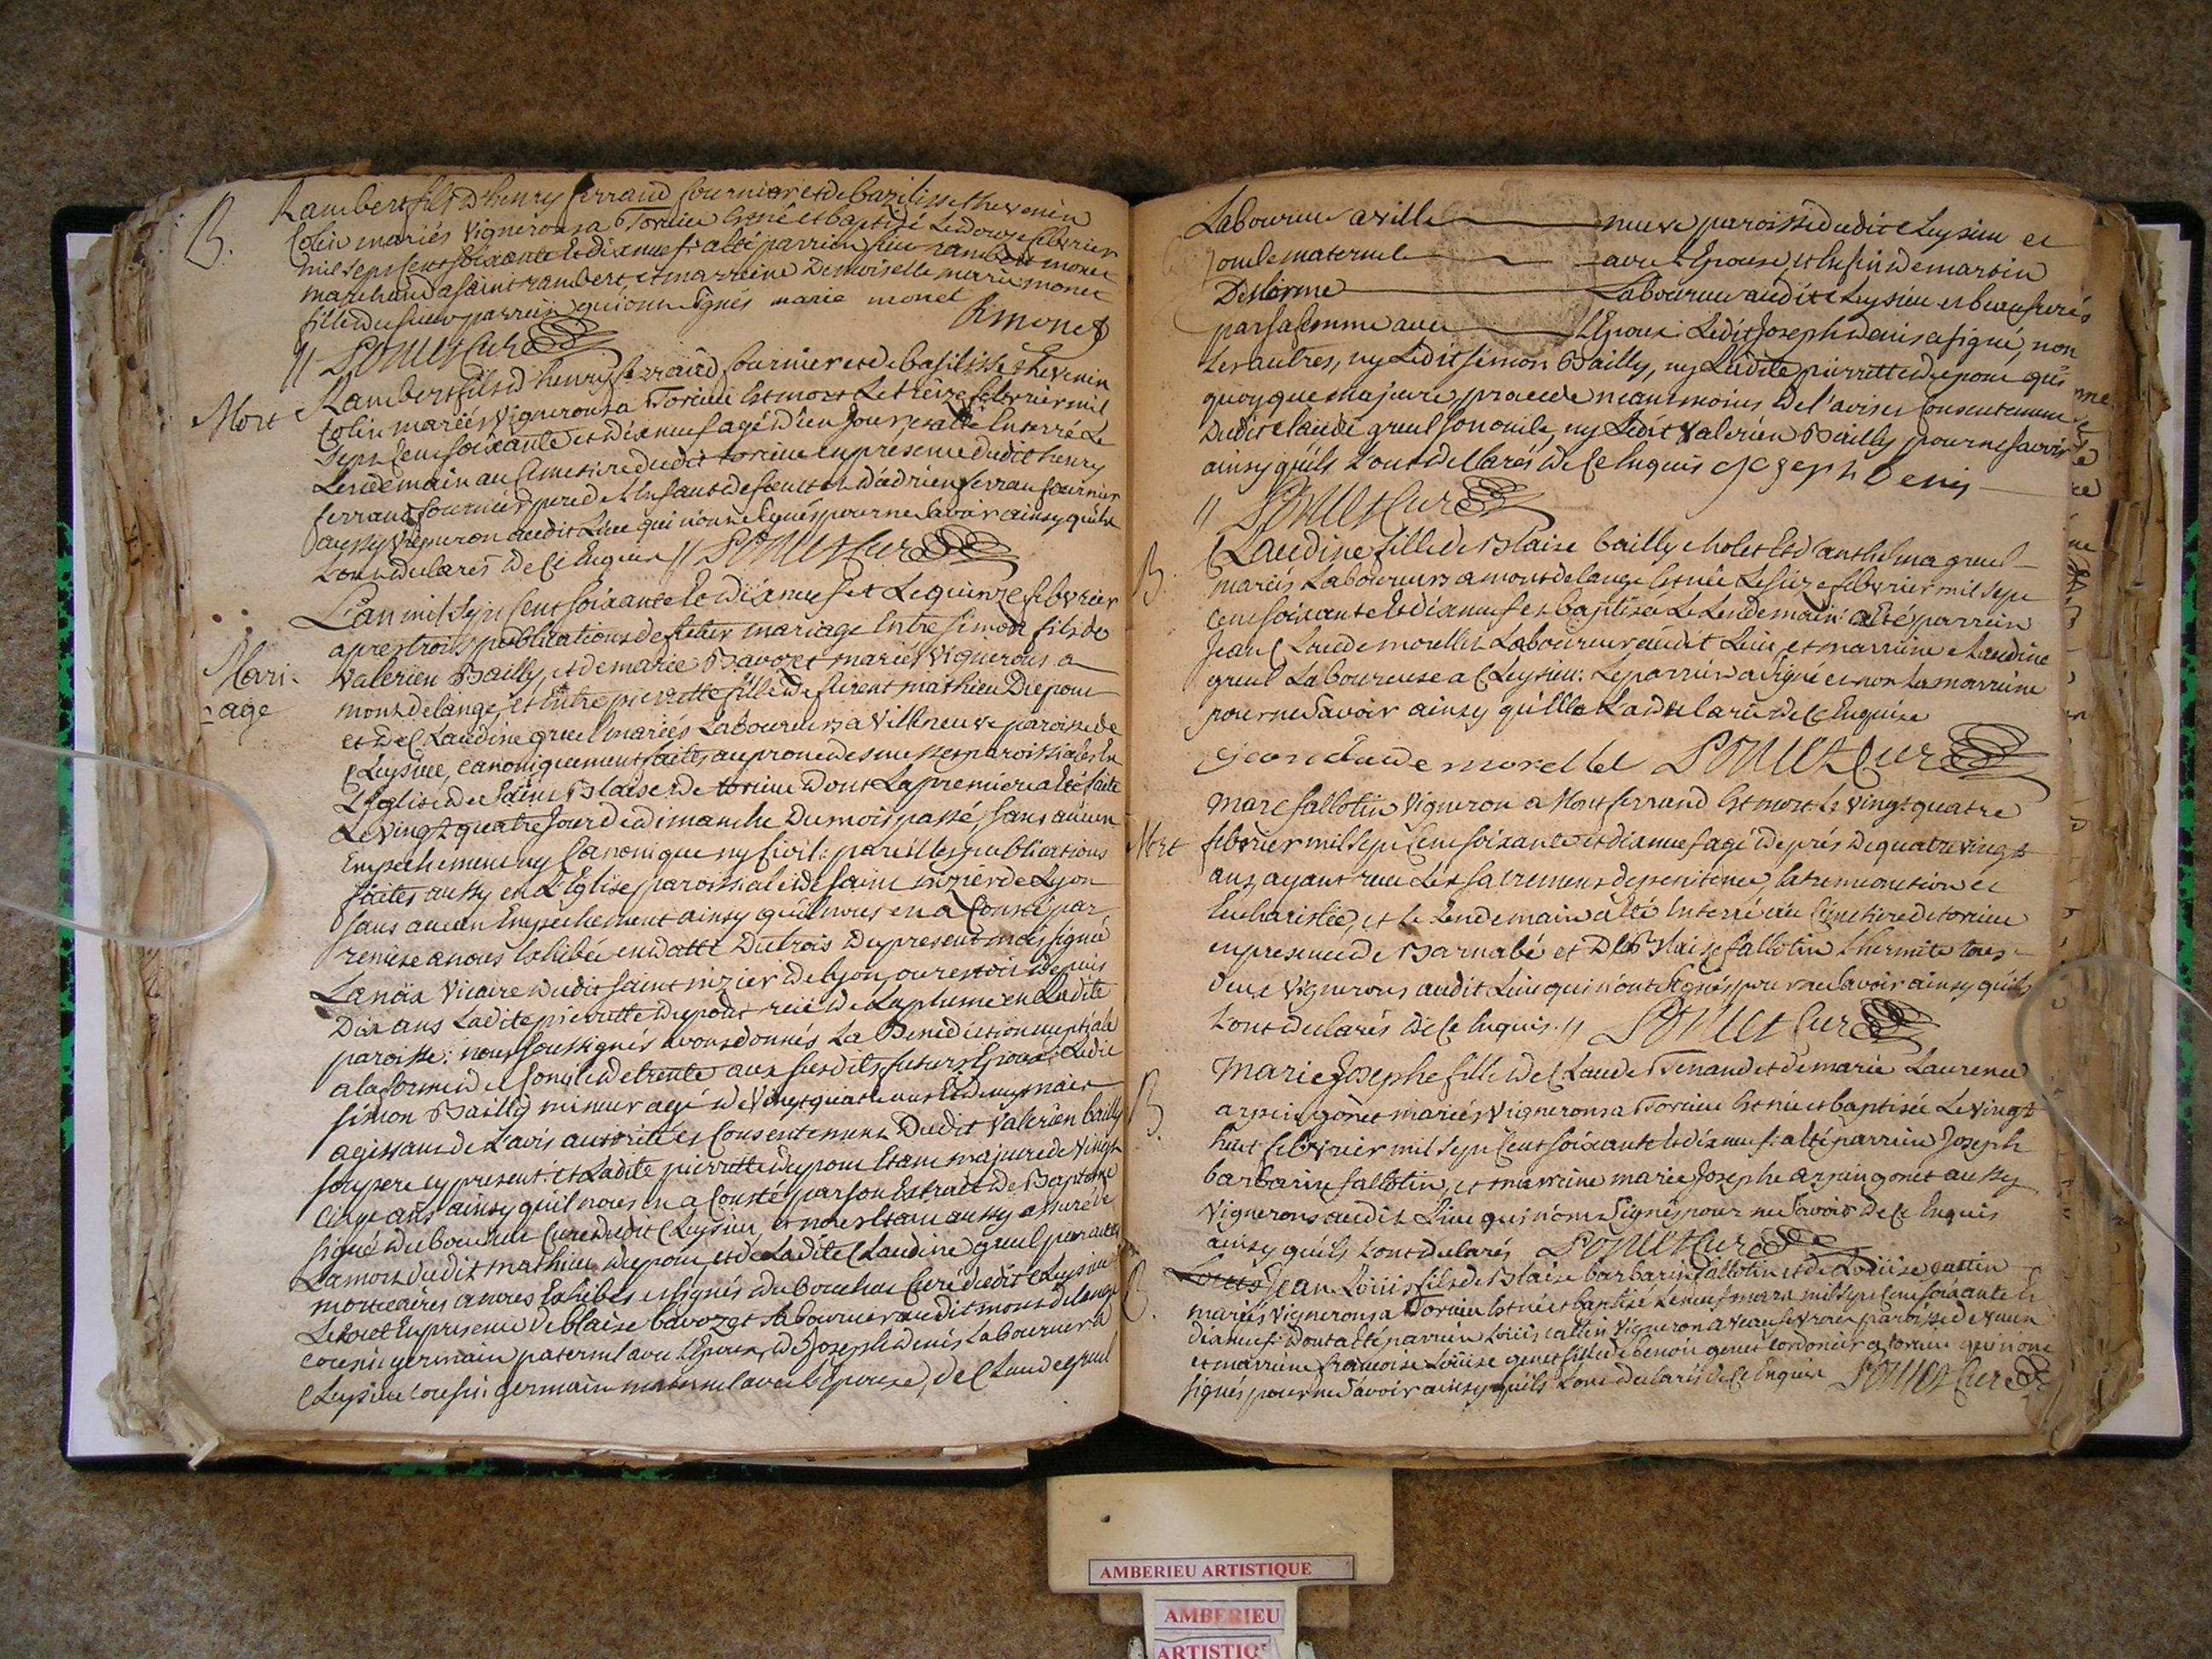 B. Rambert fils d'henry ferrand fournier et de bazilisse thevenin
Colin mariés vignerons a Torcieu Est né et baptisé Le douze febvrier
mil sept Cent soixante Et dix neuf: a été parrein sieur rambert monet
marchand a saint rambert, et marreine Demoiselle marie monet
fille du sieur parrein qui ont signés marie monet
Rmonet
// Curé
Mort Rambert fils d'henry ferrand fournier et de basilisse thevenin
Colin mariés vignerons a Torcieu Est mort Le treize febvrier mil
Sept Cent soixante et dix neuf agé d'un Jour, et a été Enterré Le
Lendemain au Cimetiere dudit torcieu en presence dudit henry
ferrand fournier pere de l'Enfant defunt et d'adrien ferrand fournier
aussy vigneron audit Lieu qui n'ont signés pour ne savoir ainsy qu'ils
L'ont declarés de Ce Enquis // Curé
L'an mil Sept Cent soixante Et dix neuf et Le quinze febvrier
apres trois publications de futur mariage Entre simon fils de
Mari- Valerien Bailly, et de marie Bavozet mariés vignerons a
-age montdelange, et Entre pierrette fille de mathieu Dupont
et de Claudine greul mariés Laboureurs a Villeneuve paroisse de
Cleysieu, canoniquement faites au prone des messes paroissiales En
L'Eglise de Saint Blaise de torcieu dont La premiere a été faite
Le vingt quatre Jour de dimanche Du mois passé, sans aucun
Empechement ny Canonique ny Civil: pareilles publications
faites aussy en L'Eglise paroissiale de saint nizier de Lyon
sans aucun Empechement ainsy qu'il nous en a Consté par
remise a nous Exhibée en datte Du trois Du present mois signée
Lanoix Vicaire dudit saint nizier de Lyon, ou residoit depuis
Dix ans Ladite pierrette dupont rüe de La plume en Ladite
paroisse: nous soussignés avons donnés La Benediction nuptiale
a la forme de Concile de trente aux susdits futurs Epoux: Ledit
simon Bailly mineur agé de Vingt quatre ans Et demy mais
agissant de L'avis autorité et Consentement Dudit Valerien bailly
son pere cy present: et Ladite pierrette dupont Etant majeure de vingt
cinq ans ainsy qu'il nous en a Consté par son Extrait de Baptême
signé dubouchet Curé dudit Cleysieu, et nous Etant aussy assuré de
La mort dudit mathieu dupont, et de Ladite Claudine greul par actes
mortuaires a nous Exhibés signés duBouchet Curé dudit Cleysieu
Le tout En presence de blaise bavozet Laboureur audit mont delange
cousin germain paternel avec l'Epoux, de Joseph denis Laboureur a
Cleysieu cousin germain maternel avec l'epouse, de Claude greul
Laboureur a ville neuve paroisse dudit Cleysieu et
oncle maternel avec L'Epouse, et Enfin de martin
Delorme Laboureur audit Cleysieu et beaufrere
par sa femme avec L'Epoux: Ledit Joseph denis a signé, non
Les autres, ny Ledit simon Bailly, ny Ladite pierrette dupont qui
quoyque majeure, procede neantmoins de l'avis et Consentement
Dudit Claude greul son oncle, ny Ledit Valerien Bailly pour ne savoir
ainsy qu'ils L'ont declarés de Ce Enquis Joseph Denis
// Curé
B. Claudine fille de Blaise bailly cholet Et d'anthelma greul
mariés Laboureurs a montdelange Est née Le seize febvrier mil sept
Cent soixante Et dix neuf et baptisée Le Lendemain: a Eté parrein
Jean Claude morellet Laboureur audit Lieu, et marreine Claudine
greul Laboureuse a Cleysieu: Le parrein a signé et non La marreine
pour ne savoir ainsy qu'elle L'a declaré de Ce Enquise
Jean claude morellet Curé
marc fallotin Vigneron a Montferrand Est mort Le vingt quatre
Mort febvrier mil Sept Cent soixante et dix neuf agé de prés de quatre vingt
ans, ayant recu Les sacrements de penitence, Extreme onction et
Eucharistie, et Le Lendemain a été Enterré au Cimetiere de torcieu
en presence de Barnabé et De Blaise fallotin L'hermite tous
deux vignerons audit Lieu qui n'ont signés pour ne savoir ainsy qu'ils
L'ont declarés de Ce Enquis. // Curé
B. Marie Josephe fille de Claude Benand et de marie Laurence
arpin gonet mariés vignerons a Torcieu Est née et baptisée Le vingt
huit febvrier mil sept Cent soixante Et dix neuf: a été parrein Joseph
barbarin fallotin, et marreine marie Josephe arpin gonet aussy
vignerons audit Lieu qui n'ont signés pour ne savoir de Ce Enquis
ainsy qu'ils L'ont declarés Curé
B. Jean Loüis fils de Blaise barbarin fallotin et de Loüise cattin
mariés vignerons a Torcieu Est né et baptisé Le neuf mars mil sept Cent soixante Et
dix neuf: dont a été parrein Loüis cattin vigneron a paroisse de
et marreine francoise Loüise genet fille de benoit genet cordonier a torcieu qui n'ont
signés pour ne savoir ainsy qu'ils L'ont declarés de Ce Enquis Curé
AMBERIEU ARTISTIQUE
AMBERIEU
ARTISTIQ